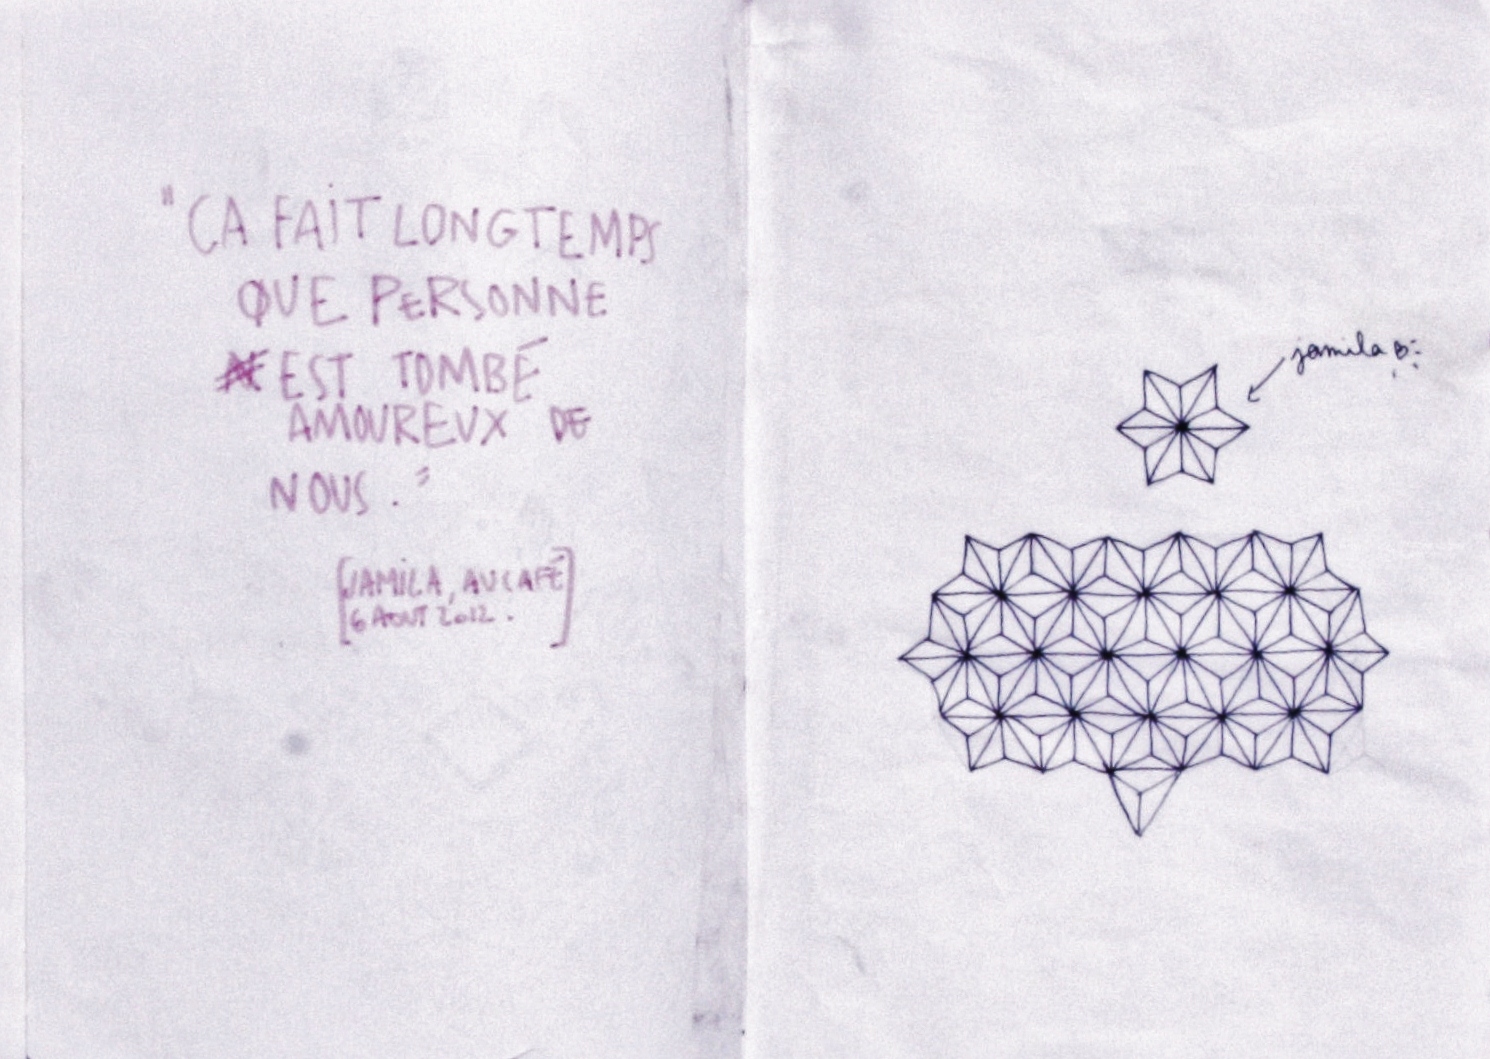 "CA FAIT LONGTEMPS
QUE PERSONNE
EST TOMBÉ
AMOUREUX DE
NOUS."
[JAMILA, AU CAFÉ
6 AOUT 2012.]
jamila B: